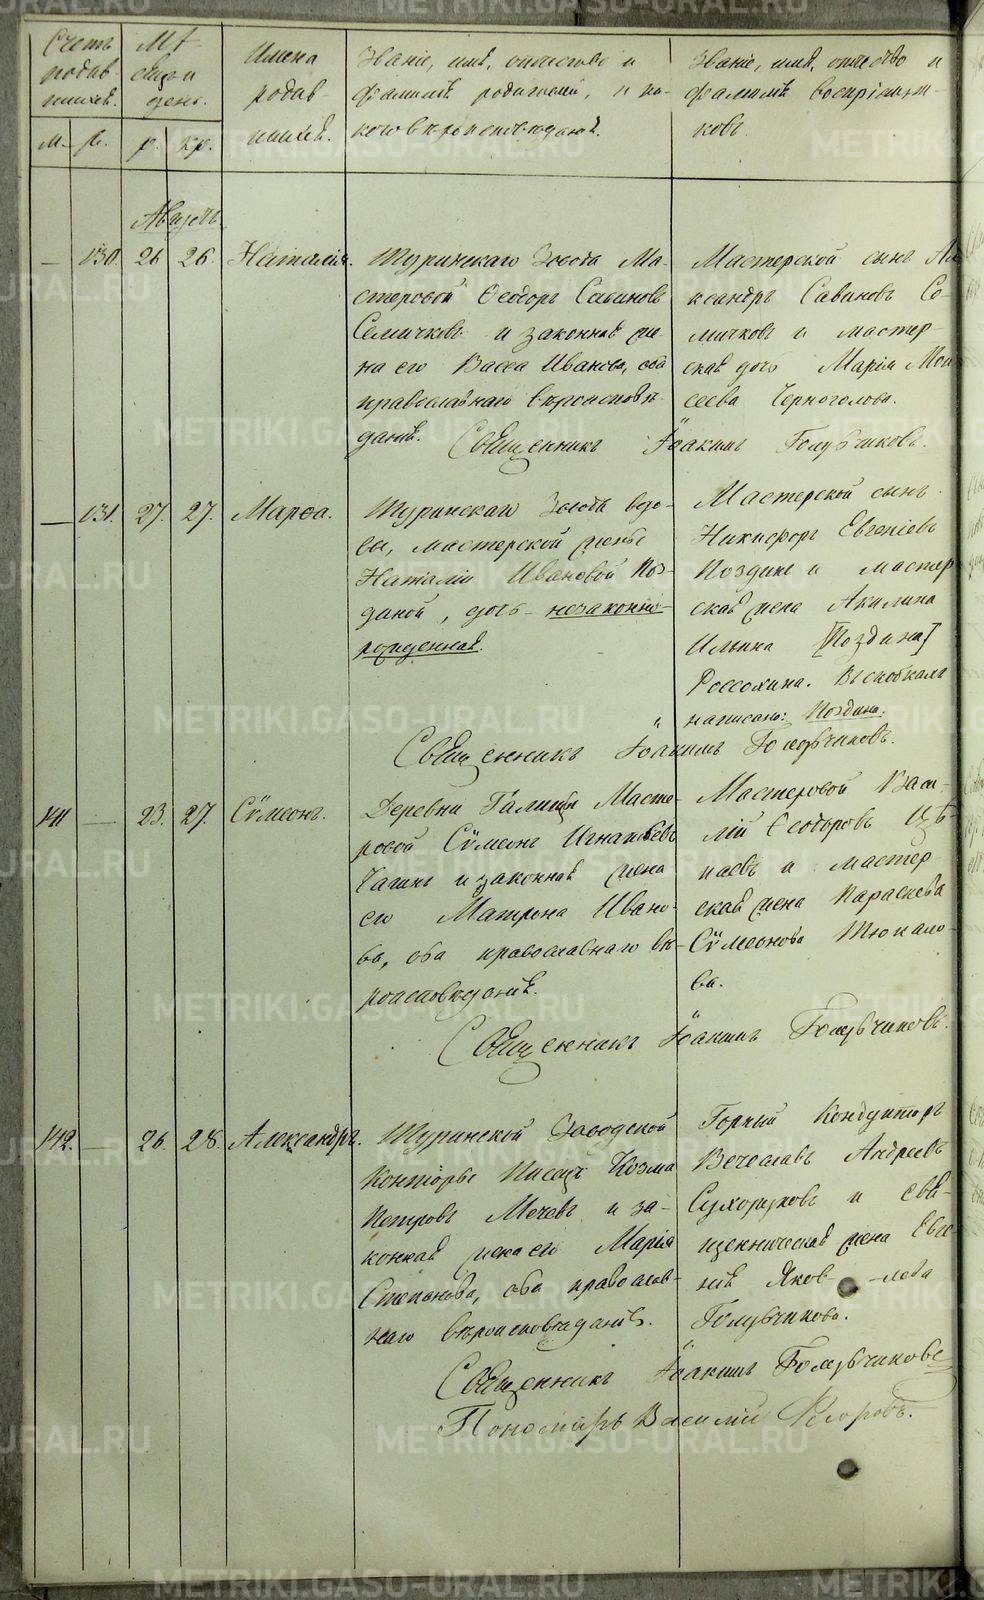 Счетъ родив-шихся.
Мѣ-сяцъ и день.
Имена родив-шихся.
Званіе, имя, отчество и фамилія родителей, и ка-кого вѣроисповѣданія.
Званіе, имя, отчество и фамилія воспріемни-ковъ.
м. ж. р. кр.
Августъ.
— 130. 26 26. Наталія.
Туринскаго Завода Ма-
стеровой Ѳеодоръ Савиновъ
Семичковъ и законная же-
на его Васса Иванова, оба
православнаго вѣроисповѣ-
данія.
Мастерской сынъ Ал-
ександръ Савиновъ Се-
мичковъ и мастер-
ская дочь Марія Мои-
сеева Черноголова.
Священникъ Іоакимъ Голубчиковъ.
— 131. 27. 27. Марѳа.
Туринскаго Завода вдо-
вы, мастерской жены
Наталіи Ивановой Поз-
диной, дочь незаконно-
рожденная.
Мастерской сынъ
Никифоръ Евгеніевъ
Поздинъ и мастер-
ская жена Акилина
Ильина [Поздина]
Россохина. Въ скобкахъ
написано: Поздина.
Священникъ Іоакимъ Голубчиковъ.
141 — 23. 27. Сѵмеонъ.
Деревни Галицы Масте-
ровой Сѵмеонъ Игнатьевъ
Чагинъ и законная жена
его Матрона Ивано-
ва, оба православнаго вѣ-
роисповѣданія.
Мастеровой Васи-
лій Ѳеодоровъ
и мастер-
ская жена Параскева
Сѵмеонова Тюкало-
ва.
Священникъ Іоакимъ Голубчиковъ.
142. — 26. 28. Александръ.
Туринской Заводской
Конторы Писецъ Козма
Петровъ Мечевъ и за-
конная жена его Марія
Степанова, оба православ-
наго вѣроисповѣданія.
Горный Кондукторъ
Вечеславъ Андреевъ
Сухоруковъ и свя-
щенническая жена Евге-
нія Яков-лева
Голубчикова.
Священникъ Іоакимъ Голубчиковъ
Пономарь Василій Ѳедоровъ.
METRIKI.GASO-URAL.RU